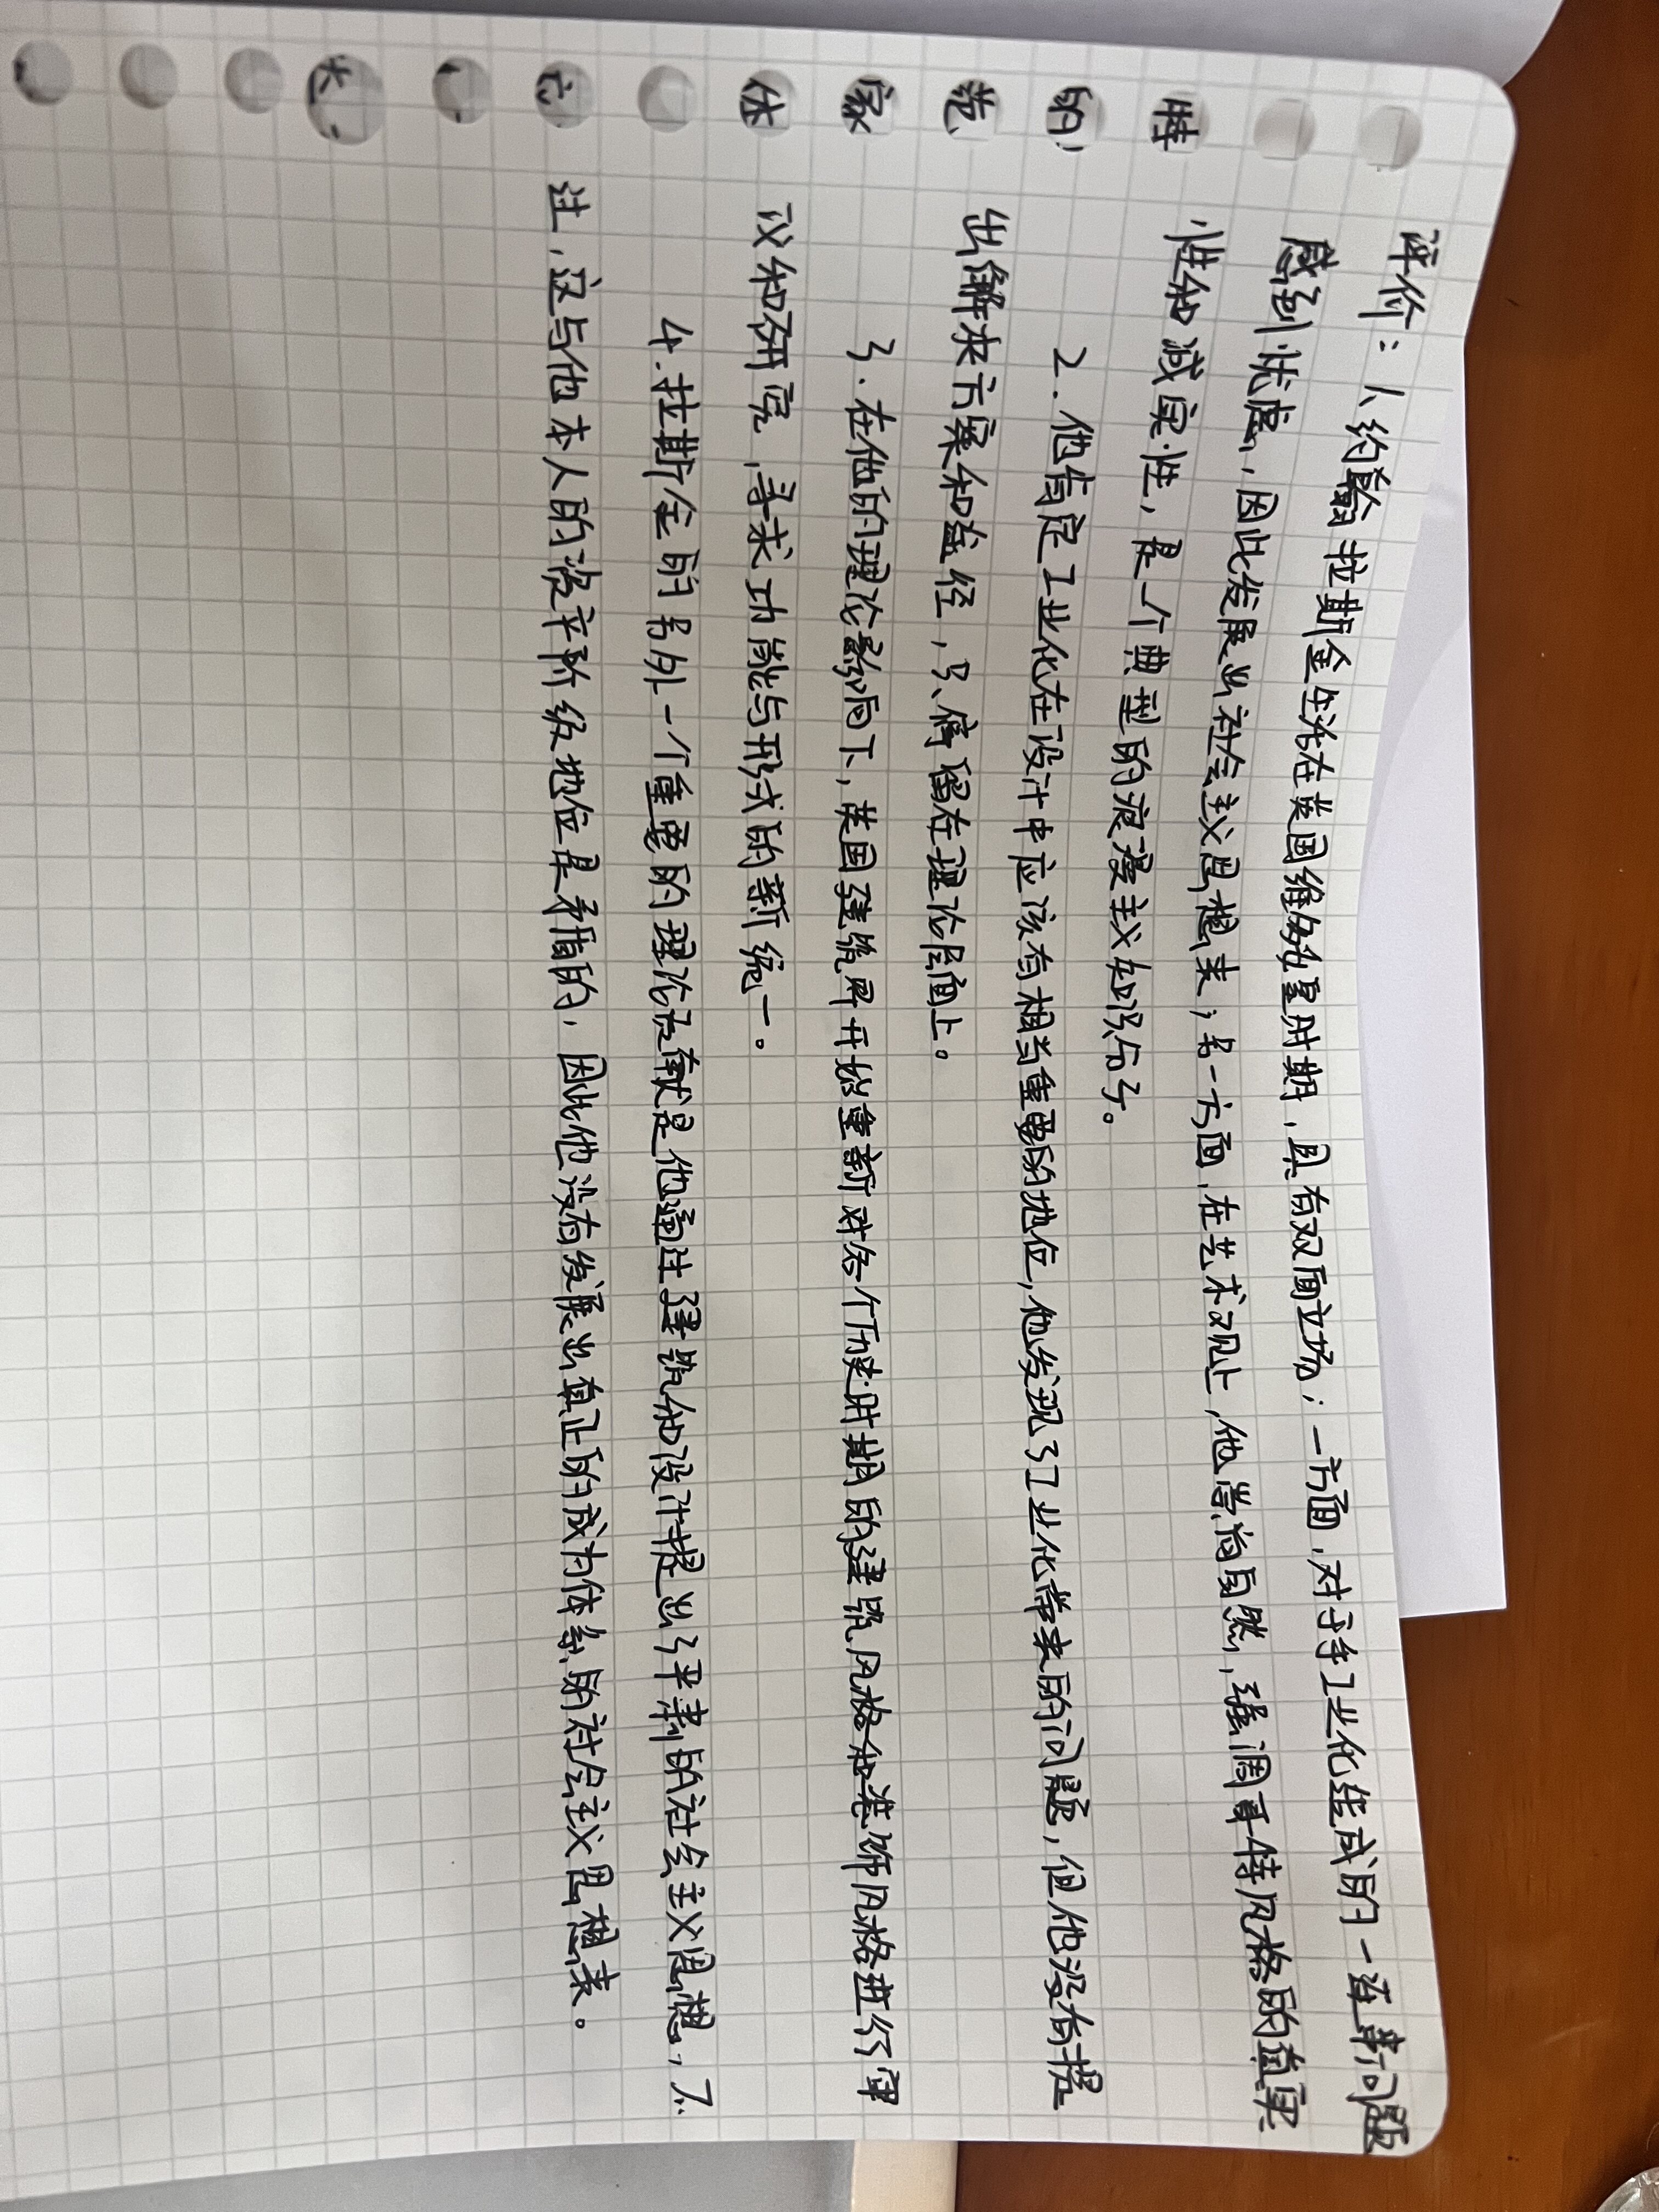 评价：1、约翰·拉斯金生活在英国维多利亚时期，具有双面立场：一方面，对于工业化组成的一连串问题
感到忧虑，因此发展出社会主义思想来；另一方面，在艺术观上，他崇尚自然，强调哥特风格的真实
性和诚实性，是一个典型的浪漫主义知识分子。
2．他肯定工业化在设计中应该有相当重要的地位，他发现了工业化带来的问题，但他没有提
出解决方案和途径，只停留在理论层面上。
3．在他的理论影响下，英国建筑界开始重新对各个历史时期的建筑风格和装饰风格进行审
议和研究，寻求功能与形式的新统一。
4．拉斯金的另外一个重要的理论贡献是他通过建筑和设计提出了平素的社会主义思想，不
过，这与他本人的资产阶级地位是矛盾的，因此他没有发展出真正的成为体系的社会主义思想来。
特
的，
范
家
体